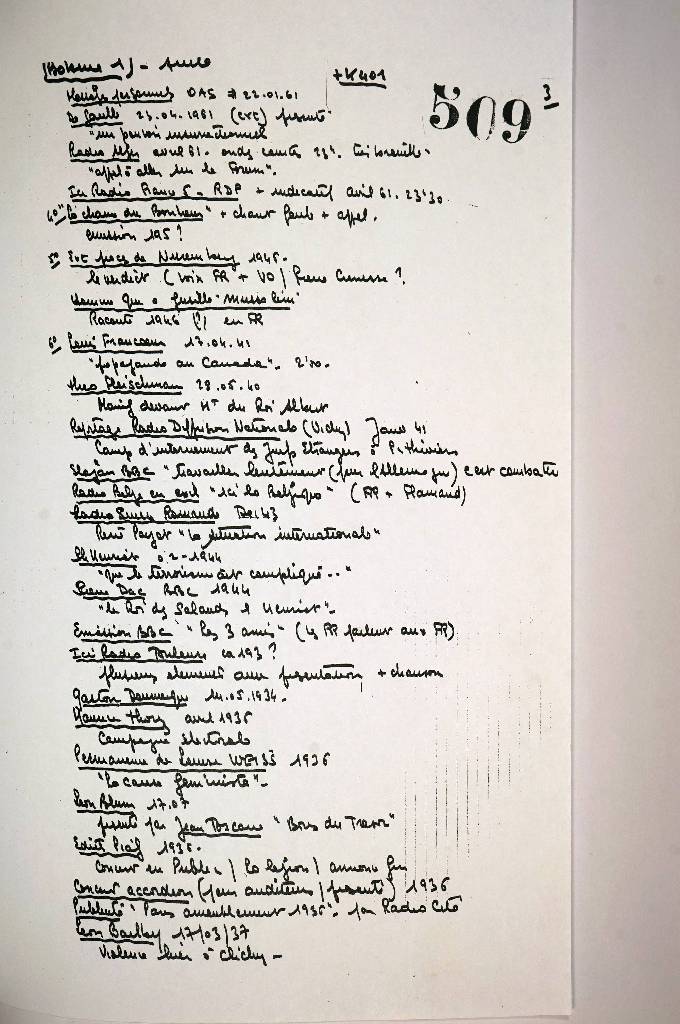 +K401
509 3
Message personnel OAS # 22.01.61
De Gaulle 23.04.1961 (ext) présenté
"un pouvoir insurrectionnel
Radio Alger avril 61. 23h.
"appel à aller sur le Forum".
Ici Radio France 5 - RDP + indicatif avril 61. 23'30
4o" "La chance du Bonheur" + chant + appel.
émission 195 ?
5o Ext procès de Nuremberg 1946.
le verdict (voix FR + VO) ?
Homme qui a fusillé "Mussolini"
Raconte 1946 (?) en FR
6o Francoeur 17.04.41
"propagande au Canada". 2'30.
Theo Fleischman 28.05.40
devant Mt du Roi Albert
Reportage Radio Diffusion Nationale (Vichy) Janv 41
Camp d'internement des Juifs Etrangers à Pithiviers
Slogan BBC "travailler lentement (pour l'Allemagne) c'est combattre
Radio Belge en exil "ici la Belgique" (FR + Flamand)
Radio Suisse Romande Dec 43
René Payot "la situation internationale"
Ph Henriot 02-1944
"que le terrorisme est compliqué..."
Pierre Dac BBC 1944
"le Roi des Salauds" Henriot".
Emission BBC "les 3 amis" (les FR parlent aux FR)
Ici Radio Toulouse ca 193 ?
plusieurs elements avec présentation + chanson
Gaston Doumergue 14.05.1934.
Maurice Thorez avril 1936
Campagne electorale
Permanence de Louise WEISS 1936
"La cause féministe".
Leon Blum 17.07
présenté par Jean Toscane "Bons du Tresor"
Edith Piaf 1936.
Concert en Public / la légion / annonce fin
Concours accordéon (pour auditeurs / présenté) 1936
Publicité "Paris ameublement 1936". par Radio Cité
Leon Bailby 17/03/37
Violence hier à Clichy -